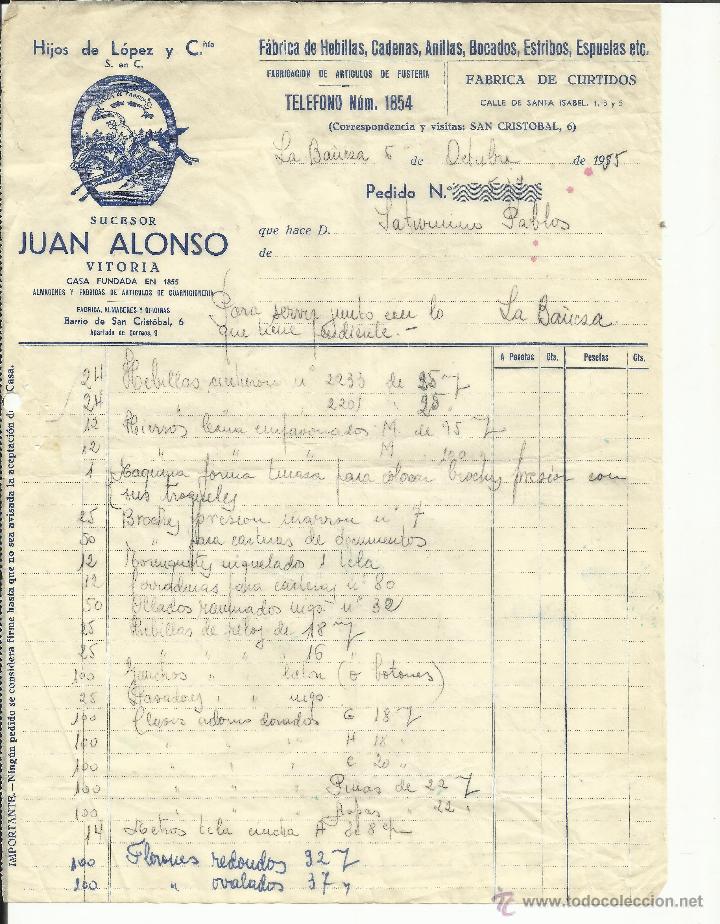 Hijos de López y C.ñía
S. en C.
SUCESOR
JUAN ALONSO
VITORIA
CASA FUNDADA EN 1855
ALMACENES Y FABRICAS DE ARTICULOS DE GUARNICIONERIA
FABRICA, ALMACENES Y OFICINAS
Barrio de San Cristóbal, 6
Apartado de Correos, 9
Fábrica de Hebillas, Cadenas, Anillas, Bocados, Estribos, Espuelas etc.
FABRICACION DE ARTICULOS DE FUSTERIA
TELEFONO Núm. 1854
FABRICA DE CURTIDOS
CALLE DE SANTA ISABEL, 1, 3 y 5
(Correspondencia y visitas: SAN CRISTOBAL, 6)
La Bañesa 5 de Octubre de 1955
Pedido N.º
que hace D. Saturnino Pablos
de
Para servir junto con lo La Bañesa
que tiene pendiente.-
A Pesetas Cts. Pesetas Cts.
24 Hebillas cinturon nº 2233 de 25 7
24 " " 2201 " 25 "
12 Hierros M. de 95 7
12 " " M
1 Maquina forma para colocar broches presion con
sus troqueles
25 Broches presion marron nº 7
50 " para carteras de documentos
12 niquelados 1 tela
12 Cerraduras para carteras nº 80
50 nº 32
25 Hebillas de reloj de 18 7
25 " " " 16
100 Ganchos " " (o botones)
25 Pasadores " "
100 Claves adorno dorados G 18 7
100 " " " H 18 "
100 " " " C 20 "
100 " " " Pinas de 22 7
100 " " " 22 "
14 Metros tela
100 Florones redondos 32 7
200 " ovalados 37 "
IMPORTANTE.- Ningún pedido se considera firme hasta que no sea avisada la aceptación de Casa.
tc www.todocoleccion.net